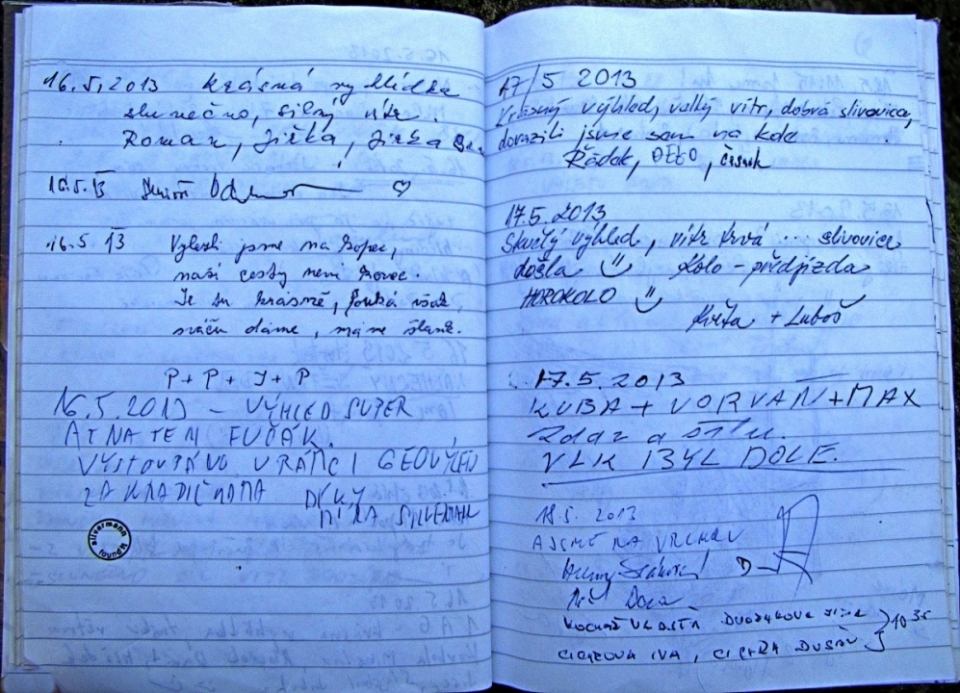 16.5.2013 krásná vyhlídka
slunečno, silný vítr.
Roman, Jiřka, Jirka
16.5.13
16.5 13 Vylezli jsme na kopec,
naší cesty není konec.
Je tu krásně, fouká však,
sváču dáme, máme šlank.
P + P + J + P
16.5.2013 - VÝHLED SUPER
AŤ NA TEN FUČÁK.
VYSTOUPÁNO V RÁMCI GEOVÝLETU
ZA KRADIČKAMA DÍKY
MÍRA SILVERMAN
silvermann
found it
17/5 2013
Krásný výhled, velký vítr, dobrá slivovica,
dorazili jsme sem na kole
Řádek, OTTO, česnek
17.5.2013
Skvělý výhled, vítr krvá ... slivovice
došla Kolo - předjízda
HOROKOLO
Květa + Luboš
17.5.2013
KUBA + VORVAŇ + MAX
Zdar a sílu.
VLK BYL DOLE.
18.5. 2013
A JSME NA VRCHOLU
VLASTA DVOŘÁKOVA
CIGLOVA IVA, DUŠAN } 10 35